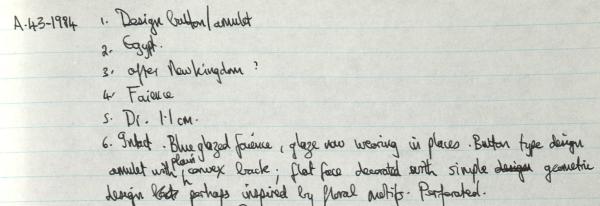 A.43-1984 1. Design button/amulet
2. Egypt.
3. after New Kingdom ?
4. Faience
5. Di. 1.1 cm.
6. Intact. Blue glazed faience, glaze now wearing in places. Button type design
amulet with plain convex back; flat face decorated with simple design geometric
design perhaps inspired by floral motifs. Perforated.